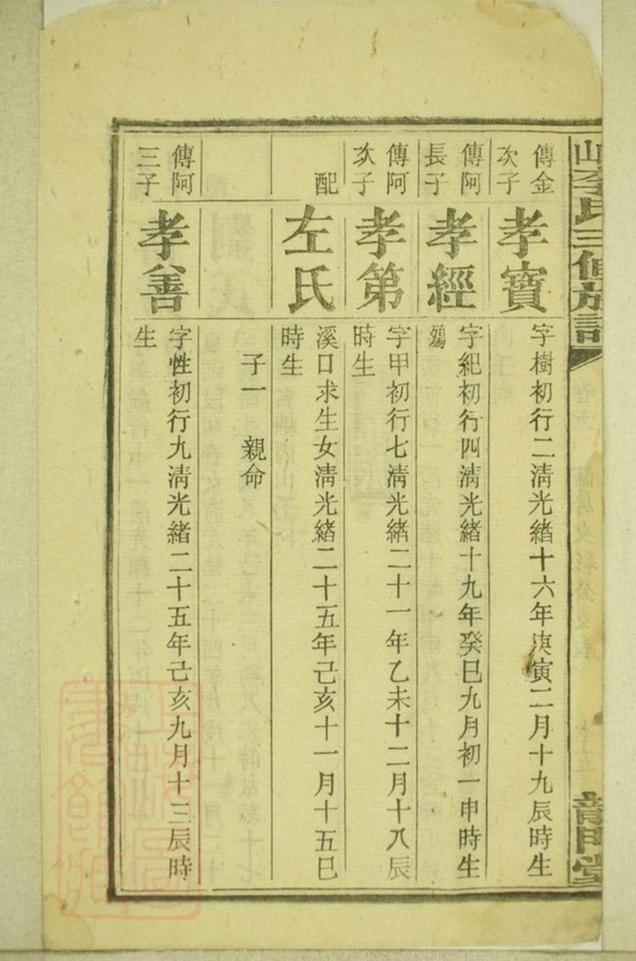 山李氏三修族譜
龍門堂
傳金
次子
孝寶
字樹初行二淸光緒十六年庚寅二月十九辰時生
傳阿
長子
孝經
字紀初行四淸光緒十九年癸巳九月初一申時生
殤
傳阿
次子
孝第
字甲初行七淸光緒二十一年乙未十二月十八辰
時生
配
左氏
溪口求生女淸光緒二十五年己亥十一月十五巳
時生
子一 親命
傳阿
三子
孝善
字性初行九淸光緒二十五年己亥九月十三辰時
生